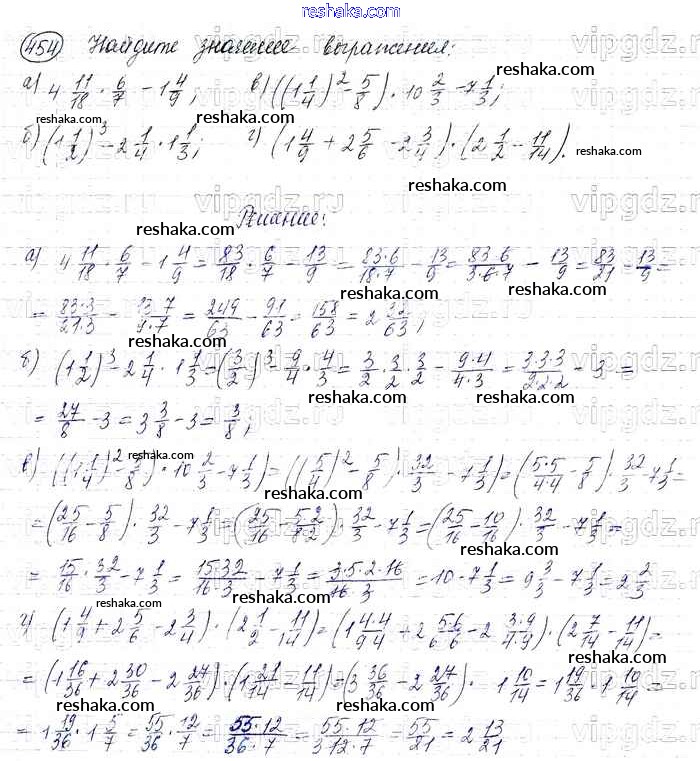 454 Найдите значение выражения:
а) 4 11/18 · 6/7 − 1 4/9; в) ((1 1/4)² − 5/8) · 10 2/3 − 7 1/3;
б) (1 1/2)³ − 2 1/4 · 1 1/3; г) (1 4/9 + 2 5/6 − 2 3/4) · (2 1/2 − 11/14).
Решение:
а) 4 11/18 · 6/7 − 1 4/9 = 83/18 · 6/7 − 13/9 = 83·6/18·7 − 13/9 = 83·6/3·6·7 − 13/9 = 83/21 − 13/9 =
= 83·3/21·3 − 13·7/9·7 = 249/63 − 91/63 = 158/63 = 2 32/63;
б) (1 1/2)³ − 2 1/4 · 1 1/3 = (3/2)³ − 9/4 · 4/3 = 3/2 · 3/2 · 3/2 − 9·4/4·3 = 3·3·3/2·2·2 − 3 =
= 27/8 − 3 = 3 3/8 − 3 = 3/8;
в) ((1 1/4)² − 5/8) · 10 2/3 − 7 1/3 = ((5/4)² − 5/8) · 32/3 − 7 1/3 = (5·5/4·4 − 5/8) · 32/3 − 7 1/3 =
= (25/16 − 5/8) · 32/3 − 7 1/3 = (25/16 − 5·2/8·2) · 32/3 − 7 1/3 = (25/16 − 10/16) · 32/3 − 7 1/3 =
= 15/16 · 32/3 − 7 1/3 = 15·32/16·3 − 7 1/3 = 3·5·2·16/16·3 = 10 − 7 1/3 = 9 3/3 − 7 1/3 = 2 2/3
г) (1 4/9 + 2 5/6 − 2 3/4) · (2 1/2 − 11/14) = (1 4·4/9·4 + 2 5·6/6·6 − 2 3·9/4·9) · (2 7/14 − 11/14) =
= (1 16/36 + 2 30/36 − 2 27/36) · (1 21/14 − 11/14) = (3 36/36 − 2 27/36) · 1 10/14 = 1 19/36 · 1 10/14 =
= 1 19/36 · 1 5/7 = 55/36 · 12/7 = 55·12/36·7 = 55·12/3·12·7 = 55/21 = 2 13/21